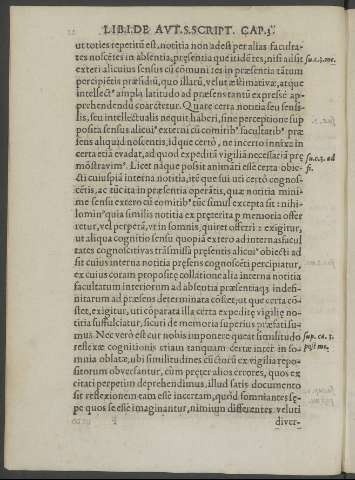 LIB.I.DE AVT.S.SCRIPT. CAP.3.
ut toties repetitū est, notitia non adest per alias faculta-
tes noscētes in absentia, pręsentia quę itidē tes, nisi adsit
exteri alicuius sensus cū comuni tes in præsentia tātum
percipiētis præsidiū, quo illarū, velut æstimativæ, atque
intellectꝰ amplą latitudo ad præsens tantū expresse ap-
prehendendū coarctetur. Quare certa notitia seu sensi-
lis, seu intellectualis nequit haberi, sine perceptione sup
posita sensus alicuiꝰ externi cū comitibꝰ facultatibꝰ præ
sens aliquid noscentis, idque certò, ne incerto innixa in
certa etiā evadat, ad quod expeditā vigiliā necessariā pręmōstravimꝰ. Licet nāque possit animati esse certa obie-
cti cuiuspiā interna notitia, itę que sui uti certò cognos-
cētis, ac tūc ita in præsentia operātis, quæ notitia mini-
me sensu extero cū comitibꝰ tūc simul excepta sit: nihi-
lomin' quia similis notitia ex pręterita p memoria offer
retur, vel perperā, ut in somnis, quiret offerri: exigitur,
ut aliqua cognitio sensu quopiā extero ad internas facul
tates cognoscitivas trāsmissa pręsentis alicuiꝰ obiecti ad
sit cuius interna notitia pręsens cognoscēti percipiatur,
ex cuius coram propositę collatione alia interna notitia
facultatum interiorum ad absentia præsentiaqʒ indefi-
nitarum ad præsens determinata cōstet; ut que certa cō-
stet, exigitur, uti cōparata illa certa expeditę vigilię no-
titia suffulciatur, sicuti de memoria superius præfati su-
mus. Nec verò est cur nobis imponere queat similitudo
reflexæ cognitionis etiam tanquam certæ inter in so-
mnia oblatæ, ubi similitudines cūctorū ex vigilia repo-
sitorum obversantur, cùm pręter alios errores, quos ex
citati perpetim deprehendimus, illud satis documento
sit reflexionem eam esse incertam, quòd somniantes sę-
pe quos se esse imaginantur, nimium differentes veluti
diver-
sup.c.3.me.
sup.c.3. ad
fi.
sup. ca. 3.
post me.